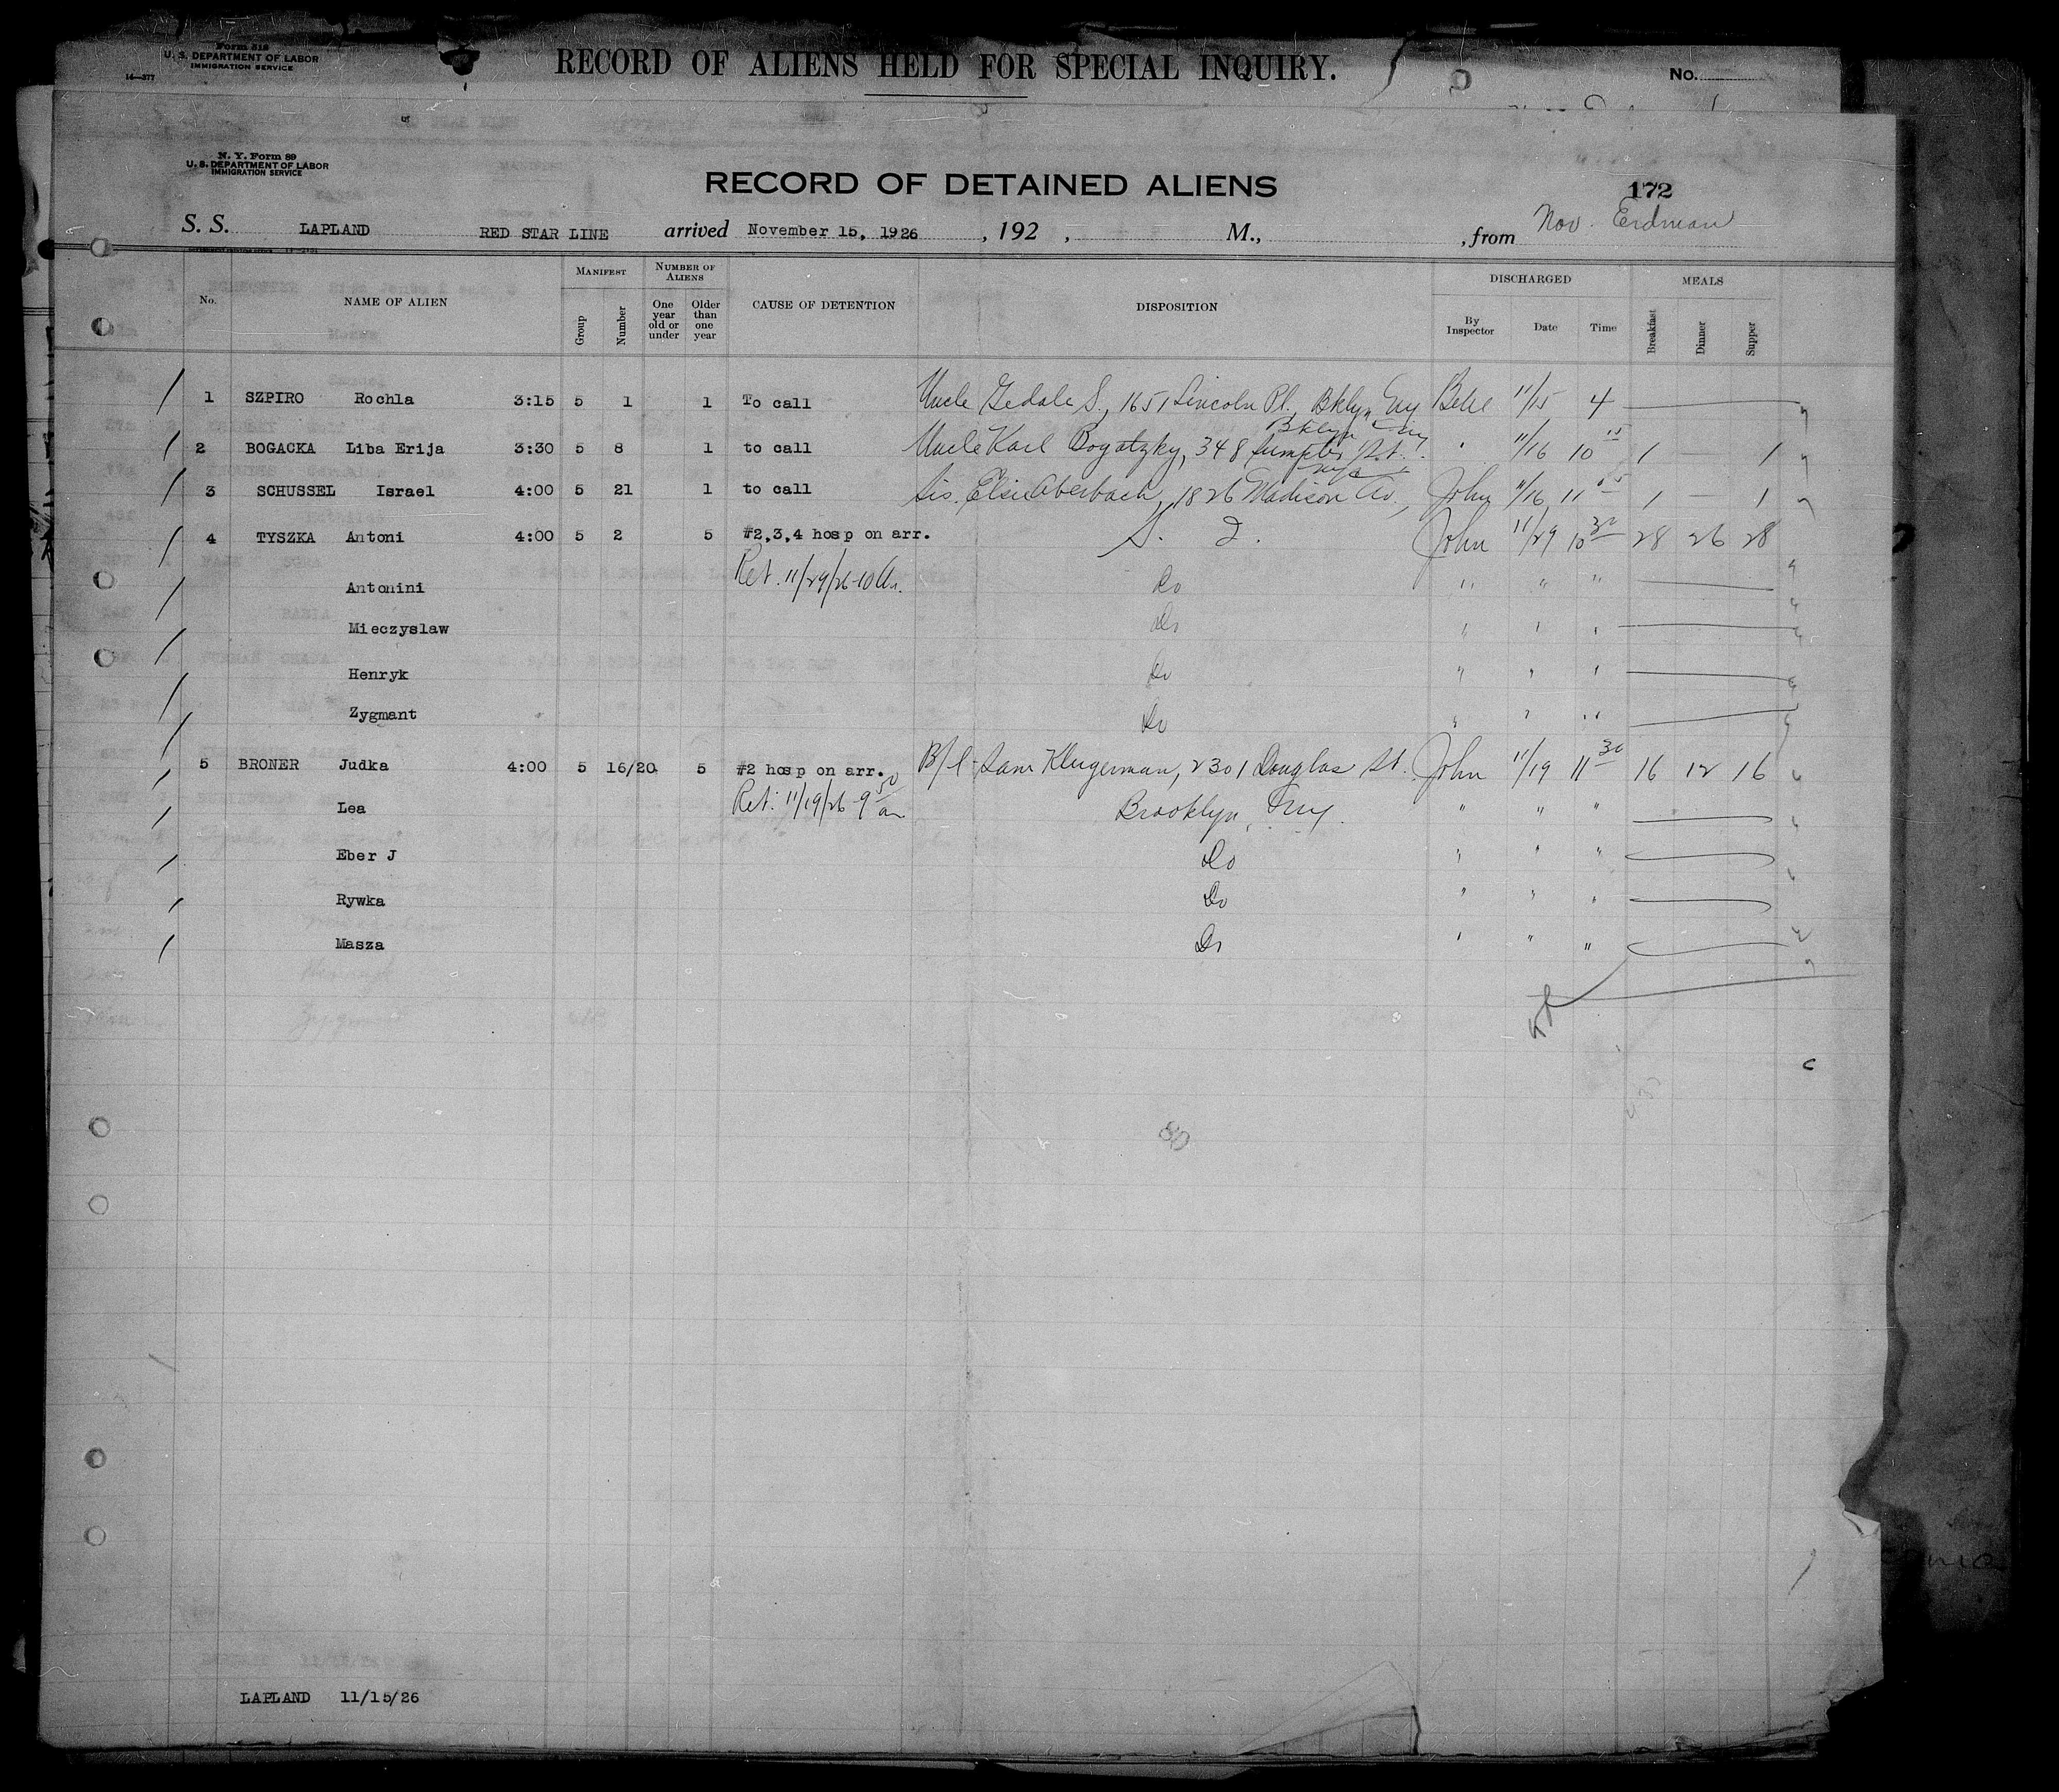 Form 518
U. S. DEPARTMENT OF LABOR
IMMIGRATION SERVICE
14—377
RECORD OF ALIENS HELD FOR SPECIAL INQUIRY.
No.
N. Y. Form 89
U. S. DEPARTMENT OF LABOR
IMMIGRATION SERVICE
RECORD OF DETAINED ALIENS
172
S. S. LAPLAND RED STAR LINE arrived November 15, 1926, 192 , M., , from Nov. Erdman
No. NAME OF ALIEN MANIFEST Group Number NUMBER OF ALIENS One year old or under Older than one year CAUSE OF DETENTION DISPOSITION DISCHARGED By Inspector Date Time MEALS Breakfast Dinner Supper
1 SZPIRO Rochla 3:15 5 1 1 To call Uncle Gedale S., 1651 Lincoln Pl., Bklyn, Ny 11/15 4
Bklyn Ny
2 BOGACKA Liba Erija 3:30 5 8 1 to call Uncle Karl Bogatzky, 348 Sumpter St. " 11/16 10 15 1 1
nyc
3 SCHUSSEL Israel 4:00 5 21 1 to call Sis. Elsie Aberbach, 1826 Madison Av, John 11/16 11 1 1
4 TYSZKA Antoni 4:00 5 2 5 #2,3,4 hosp on arr. S. I. John 11/29 10 30 28 26 28
Antonini Ret. 11/29/26-10 Am. Do " " "
Mieczyslaw Do " " "
Henryk Do " " "
Zygmant Do " " "
5 BRONER Judka 4:00 5 16/20 5 #2 hosp on arr. B/l-Sam Klugerman, 2301 Douglas St. John 11/19 11 30 16 12 16
Lea Ret: 11/19/26-9 50 am Brooklyn, Ny. " " "
Eber J Do " " "
Rywka Do " " "
Masza Do " " "
80
LAPLAND 11/15/26